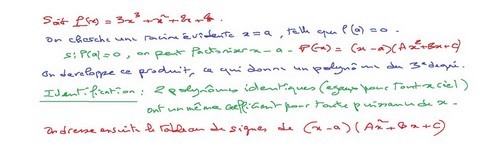 Soit P(x) = 3x³ + x² + 8x + 6.
On cherche une racine évidente x = a, telle que P(a) = 0.
Si P(a) = 0, on peut factoriser x - a. P(x) = (x - a)(Ax² + Bx + C)
On developpe ce produit, ce qui donne un polynôme du 3e degré.
Identification : 2 polynômes identiques (égaux pour tout x réel)
ont un même coefficient pour toute puissance de x.
On dresse ensuite le tableau de signes de (x - a)(Ax² + Bx + C)